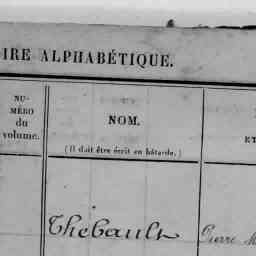 IRE ALPHABÉTIQUE.
NU-
MÉRO
du
volume.
NOM.
(Il doit être écrit en bâtarde.)
ET
Thébault
Pierre M